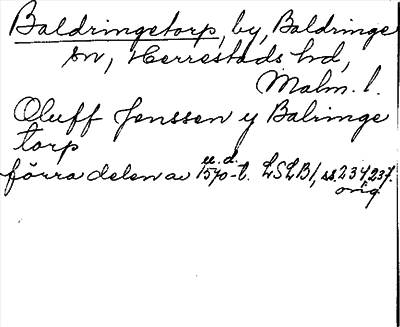 Baldringetorp, by, Baldringe
sn, Herrestads hd,
Malm. l.
Oluff Jenssen y Balringe
torp
u. d.
förra delen av 1540-t. LSLB 1, ss. 234, 237.
orig.